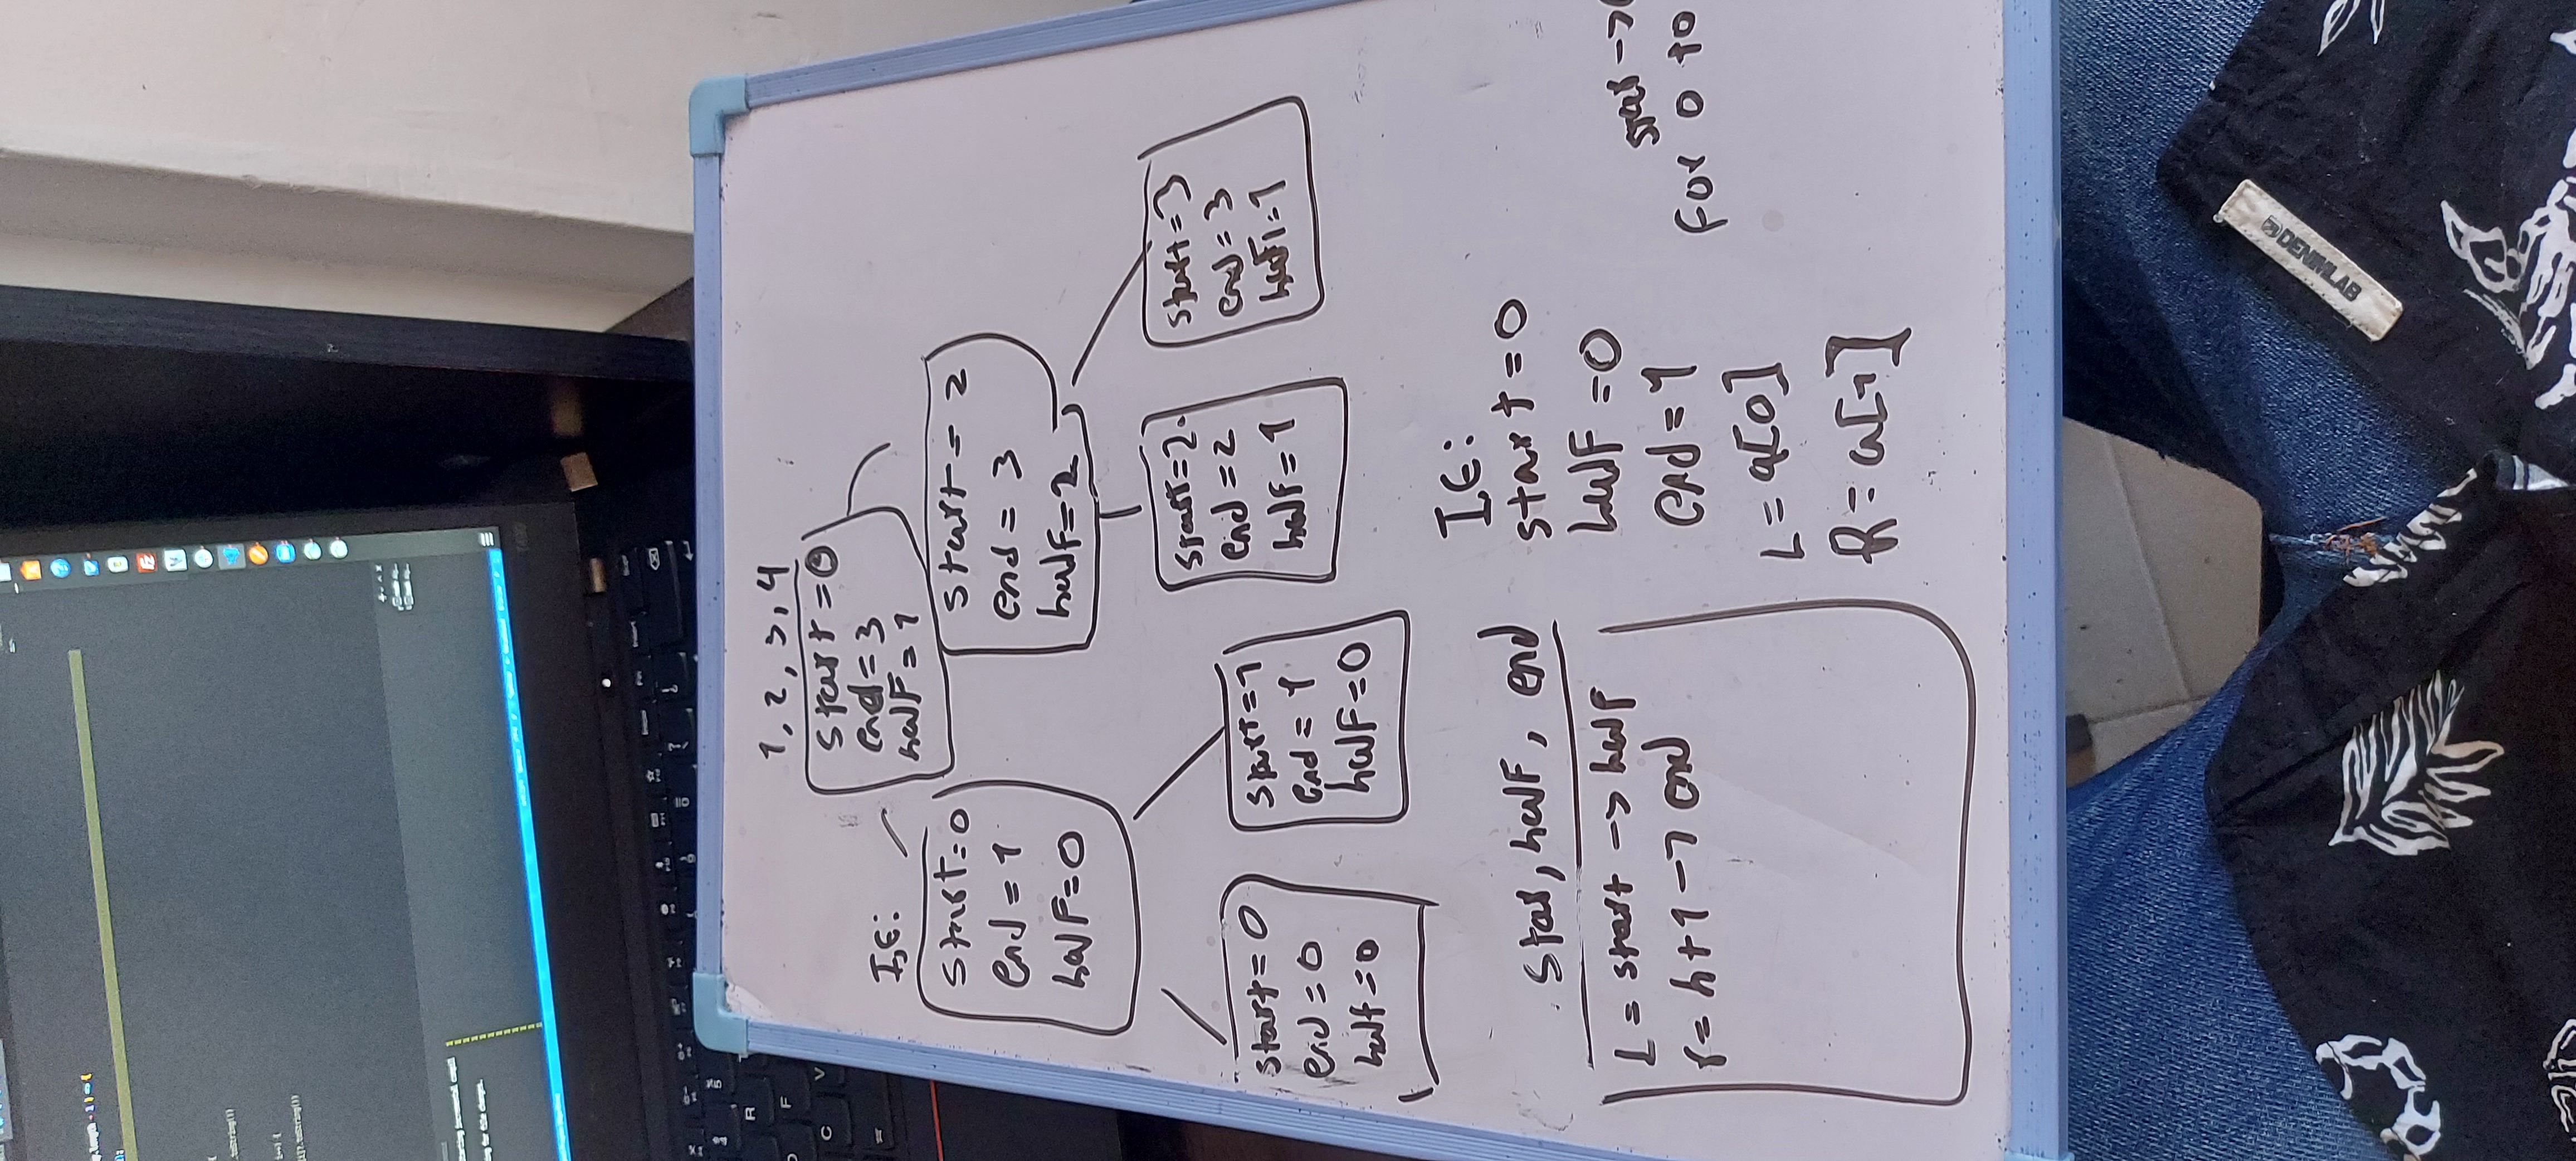 .length - 1 ) => {
.toString())
i++) {
[i]?.toString())
Starting incremental compil
ing for file changes.
T430
R
F
C
V
1, 2, 3, 4
start = 0
end = 3
half = 1
I,E:
start = 0
end = 1
half = 0
start = 2
end = 3
half = 2
start = 0
end = 0
half = 0
start = 1
end = 1
half = 0
start = 2
end = 2
half = 1
start = 3
end = 3
half = 1
Star, half, end
L = start -> half
r = h+1 -> end
I.E:
start = 0
half = 0
end = 1
L = a[0]
R = a[1]
->
For 0 to
DENIMLAB